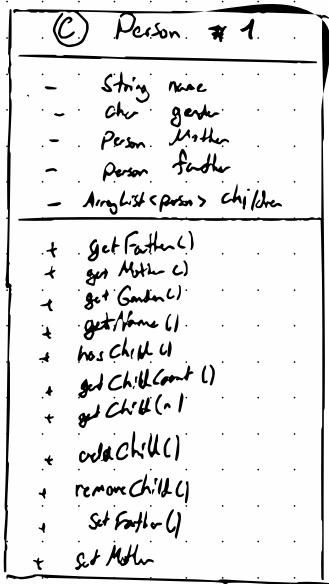 © Person # 1
- String name
- char gender
- Person Mother
- Person father
- ArrayList<person> children
+ getFather()
+ get Mother()
+ get Gender()
+ getName()
+ hasChild()
+ getChildCount()
+ getChild(n)
+ addChild()
+ removeChild()
+ Set Father()
+ Set Mother